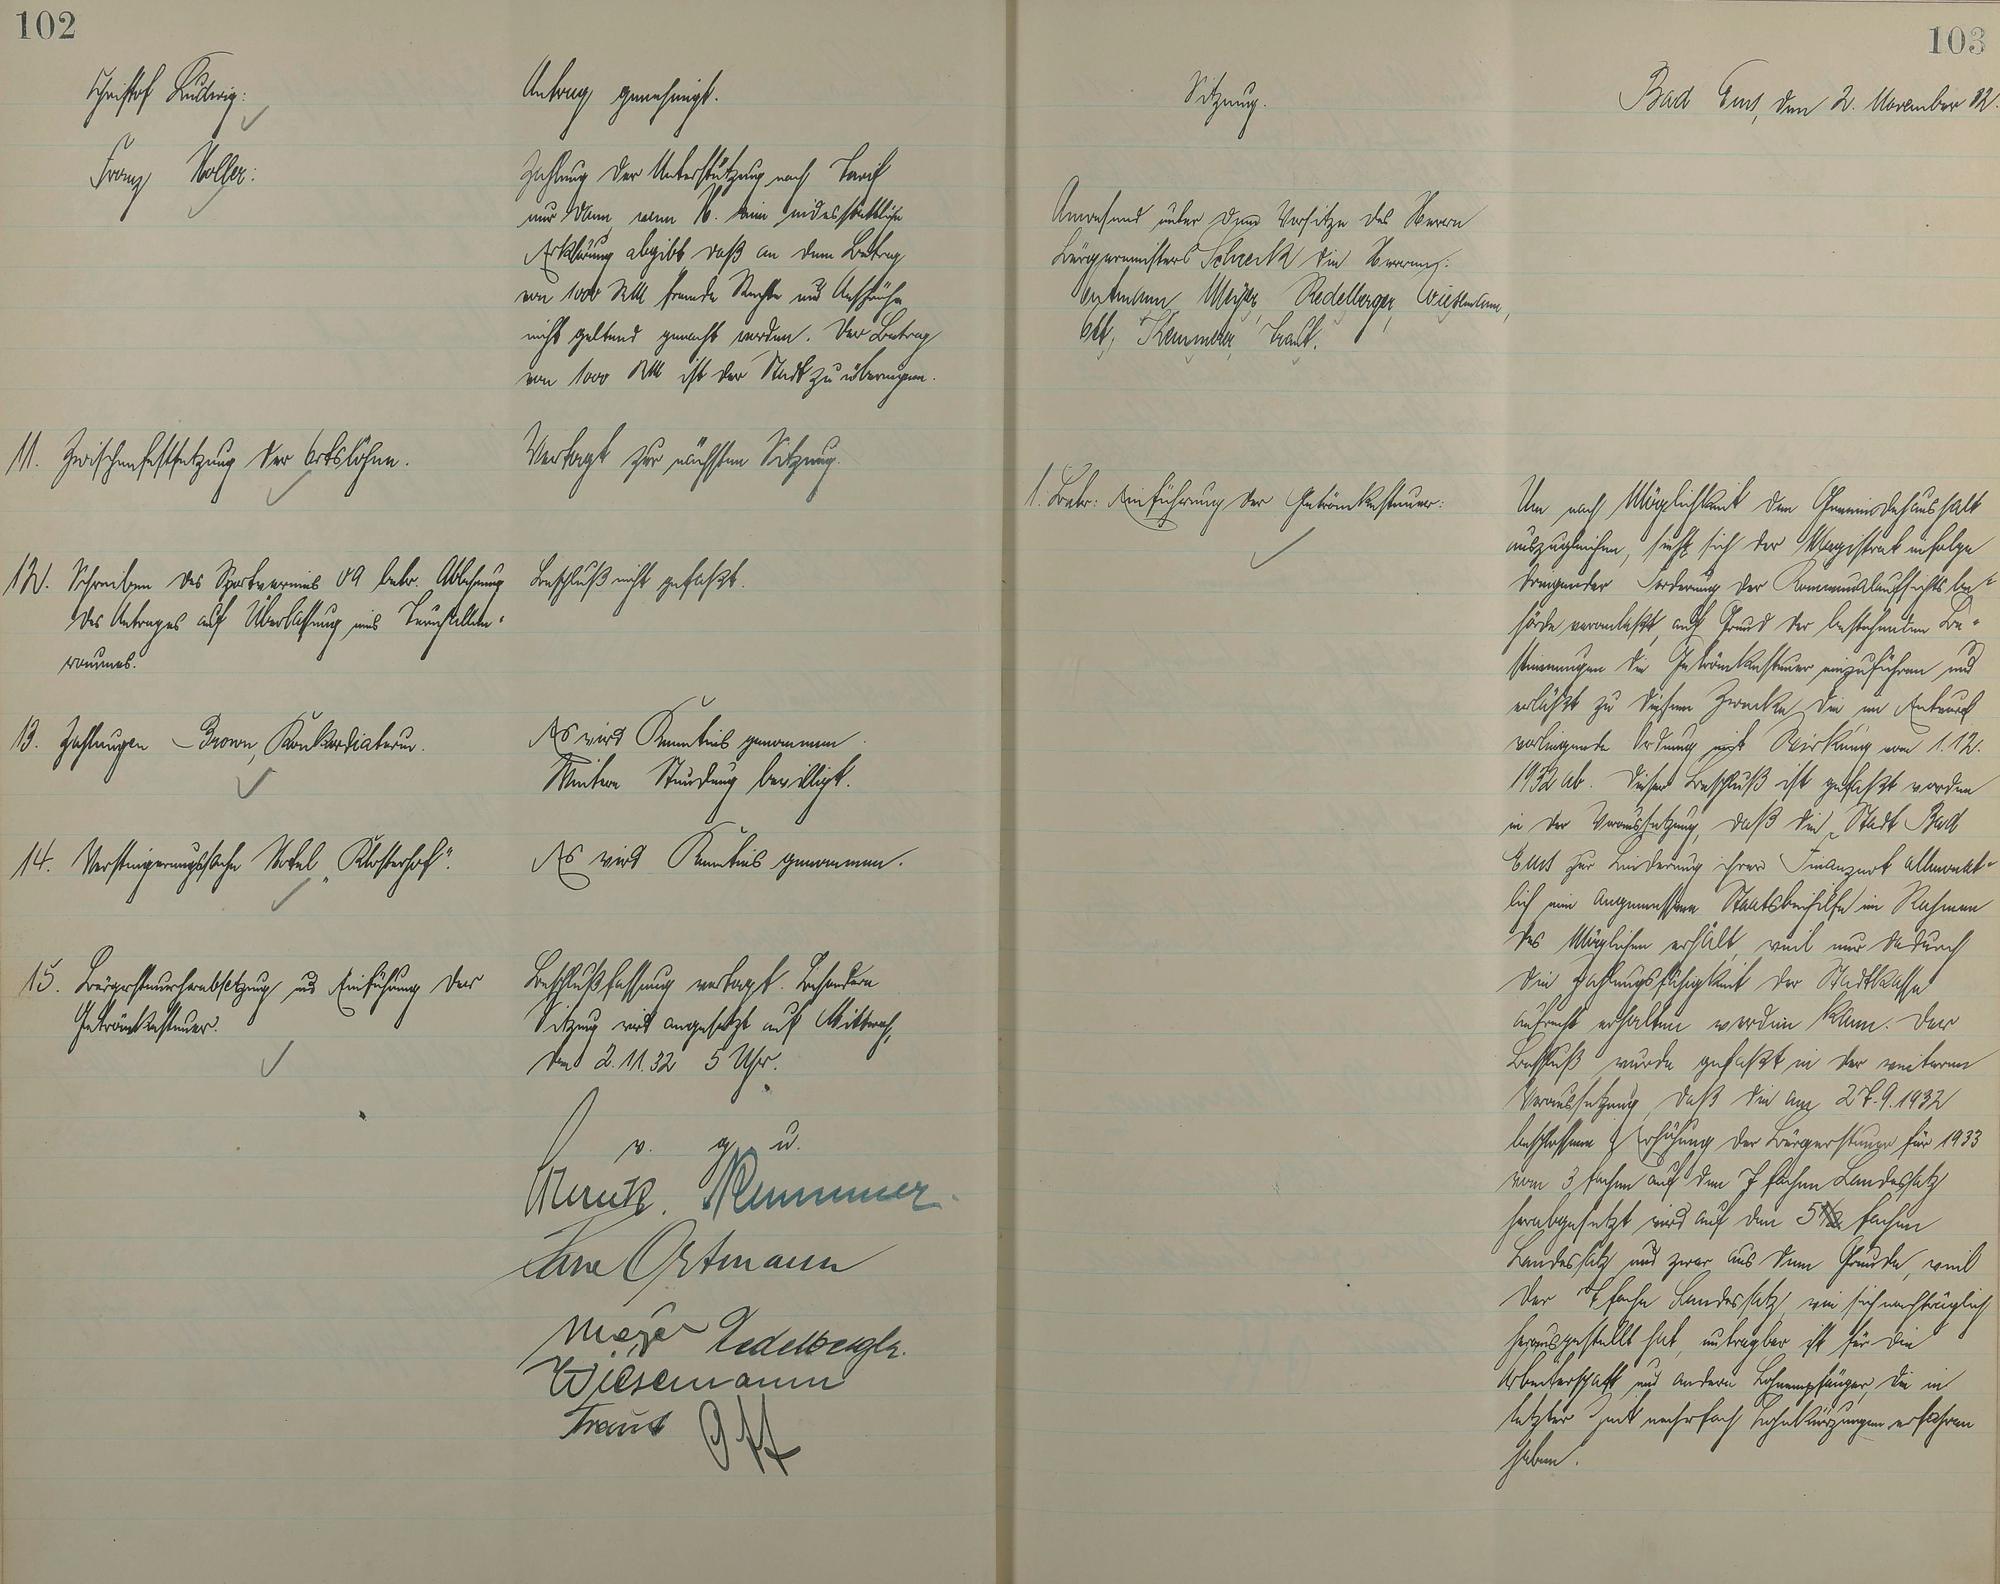 102
Christof Ludwig:
Antrag genehmigt.
Franz Holler:
Zahlung der Unterstützung nach Tarif
nur dann, wenn H. eine eidesstattliche
Erklärung abgibt daß an dem Betrag
von 1000 RM fremde Rechte und Ansprüche
nicht geltend gemacht werden. Der Betrag
von 1000 RM ist der Stadt zu übereignen.
11. Zwischenfestsetzung der Ortslöhne.
Vertagt zur nächsten Sitzung.
12. Schreiben des Sportvereins 09 betr. Ablehnung
des Antrages auf Überlassung eines
raumes.
Beschluß nicht gefaßt.
13. Zahlungen Brown, Konkordiaturm.
Es wird Kenntnis genommen
Weitere Stundung bewilligt.
14. Versteigerungssache Hotel „Klosterhof".
Es wird Kenntnis genommen.
15. Bürgersteuerherabsetzung und Einführung der
Getränkesteuer.
Beschlußfassung vertagt. Besondere
Sitzung wird angesetzt auf Mittwoch,
den 2.11.32 5 Uhr.
v. g. u.
Schreck. Kemmer
Ortmann
Meyer Redelberger.
Wiesemann
Traut Ott
103
Sitzung.
Bad Ems, den 2. November 32.
Anwesend unter dem Vorsitze des Herrn
Bürgermeisters Schreck die Herren:
Ortmann, Meyer, Redelberger, Wiesemann,
Ott, Kemmer, Traut.
1. Betr: Einführung der Getränkesteuer:
Um nach Möglichkeit den Gemeindehaushalt
auszugleichen, sieht sich der Magistrat infolge
dringender Forderung der Kommunalaufsichtsbe-
hörde veranlaßt, auf Grund der bestehenden Be-
stimmungen die Getränkesteuer einzuführen und
erläßt zu diesem Zwecke die im Entwurf
vorliegende Ordnung mit Wirkung vom 1.12.
1932 ab. Dieser Beschluß ist gefaßt worden
in der Voraussetzung, daß die Stadt Bad
Ems zur Linderung ihrer Finanznot allmonat-
lich eine angemessene Staatsbeihilfe im Rahmen
des Möglichen erhält, weil nur dadurch
die Zahlungsfähigkeit der Stadtkasse
aufrecht erhalten werden kann. Der
Beschluß wurde gefaßt in der weiteren
Voraussetzung, daß die am 27.9.1932
beschlossene Erhöhung der Bürgersteuer für 1933
vom 3 fachen auf den 7 fachen Landessatz
herabgesetzt wird auf den 5 fachen
Landessatz und zwar aus dem Grunde, weil
der 7 fache Landessatz, wie sich nachträglich
herausgestellt hat, untragbar ist für die
Arbeiterschaft und andere Lohnempfänger, die in
letzter Zeit mehrfach Lohnkürzungen erfahren
haben.